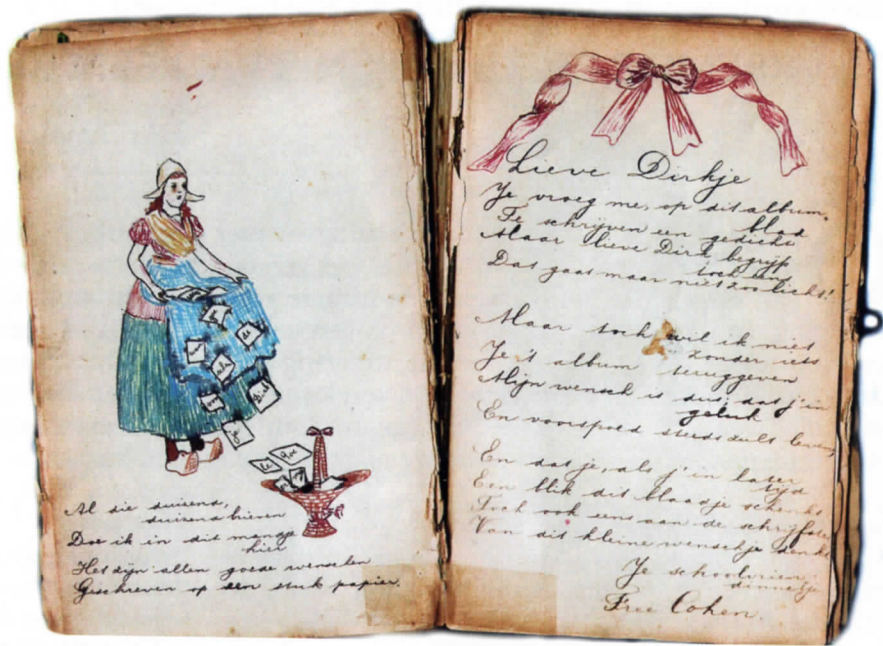 Al die duizend,
duizend brieven
Doe ik in dit mandje
hier
Het zijn allen goede wenschen
Geschreven op een stuk papier.
Lieve Dirkje
Je vroeg me, op dit album
blad
Te schrijven een gedicht
Maar lieve Dirk begrijp
toch eens
Dat gaat maar niet zoo licht!
Maar toch wil ik niet
zonder iets
Je 't album teruggeven
Mijn wensch is dus, dat j'in
geluk
En voorspoed steeds zult leven,
En dat je, als j'in later
tijd
Een blik dit blaadje schenkt
Toch ook eens aan de schrijfster
Van dit kleine wenschje denkt
Je schoolvrien-
dinnetje
Free Cohen.